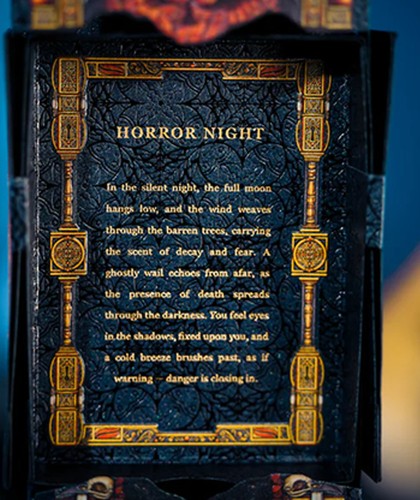 HORROR NIGHT
In the silent night, the full moon
hangs low, and the wind weaves
through the barren trees, carrying
the scent of decay and fear. A
ghostly wail echoes from afar, as
the presence of death spreads
through the darkness. You feel eyes
in the shadows, fixed upon you, and
a cold breeze brushes past, as if
warning – danger is closing in.